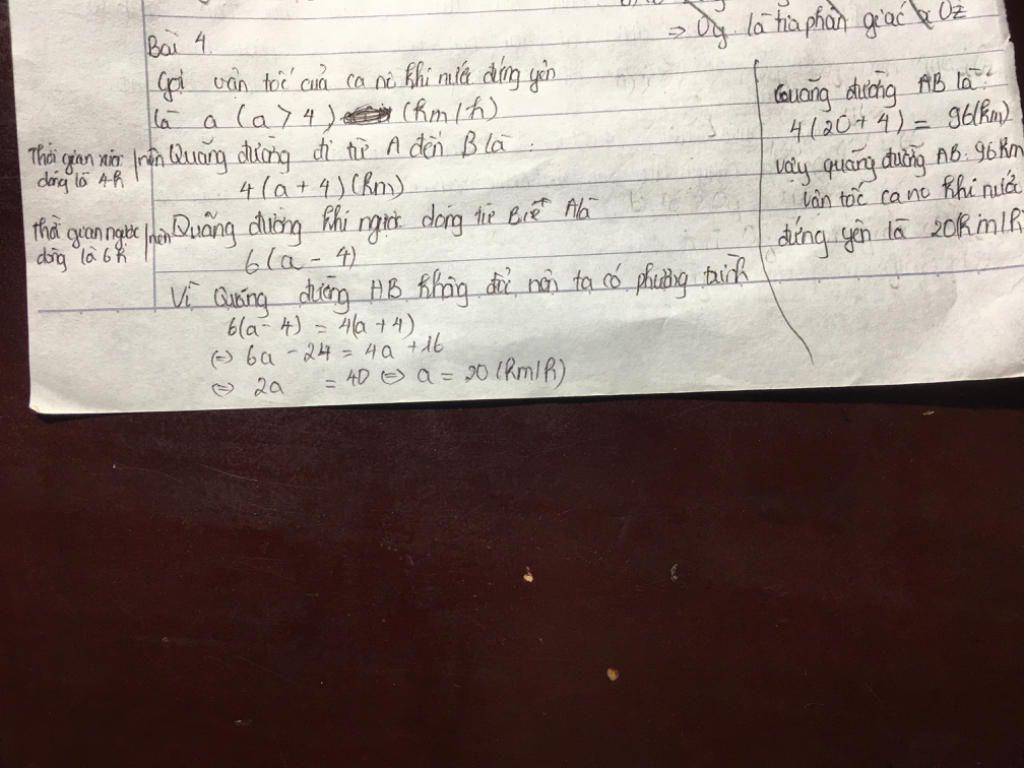 ⇒ Oy là tia phân giác x Oz
Bài 4.
Gọi vận tốc của ca nô khi nước đứng yên
là a (a > 4) (km/h)
Thời gian xuôi dòng là 4h nên Quãng đường đi từ A đến B là:
4(a + 4)(km)
Thời gian ngược dòng là 6h nên Quãng đường khi ngược dòng từ B A là
6(a - 4)
Vì Quãng đường AB không đổi nên ta có phương trình
6(a - 4) = 4(a + 4)
⇔ 6a - 24 = 4a + 16
⇔ 2a = 40 ⇔ a = 20 (km/h)
Quãng đường AB là:
4(20 + 4) = 96(km)
Vậy quãng đường AB: 96km
vận tốc ca no khi nước
đứng yên là 20km/h